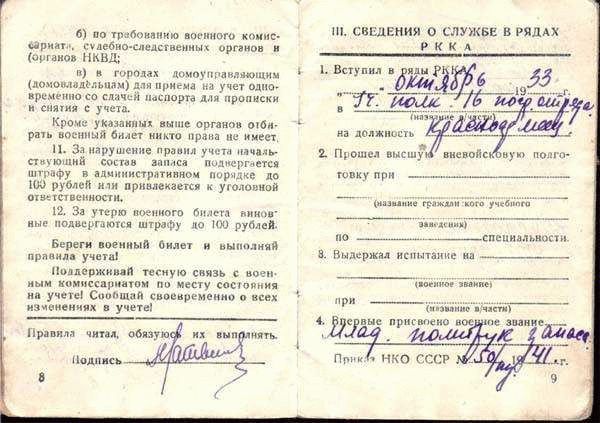 б) по требованию военного комис-
сариата, судебно-следственных органов и
(органов НКВД;
в) в городах домоуправляющим
(домовладельцам) для приема на учет одно-
временно со сдачей паспорта для прописки
и снятия с учета.
Кроме указанных выше органов отби-
рать военный билет никто права не имеет.
11. За нарушение правил учета началь-
ствующий состав запаса подвергается
штрафу в административном порядке до
100 рублей или привлекается к уголовной
ответственности.
12. За утерю военного билета винов-
ные подвергаются штрафу до 100 рублей.
Береги военный билет и выполняй
правила учета!
Поддерживай тесную связь с воен-
ным комиссариатом по месту состояния
на учете! Сообщай своевременно о всех
изменениях в учете!
Правила читал, обязуюсь их выполнять.
Подпись
8
III. СВЕДЕНИЯ О СЛУЖБЕ В РЯДАХ
РККА
1. Вступил в ряды РККА
" октябрь 1933 г.
в полк 16 погр. отряда
(название в/части)
на должность красноармеец
2. Прошел высшую вневойсковую подго-
товку при
(название гражданского учебного
заведения)
по специальности.
3. Выдержал испытание на
(военное звание)
при
(название в/части)
4. Впервые присвоено военное звание
млад. политрук запаса
Приказ НКО СССР № 150 1941 г.
9